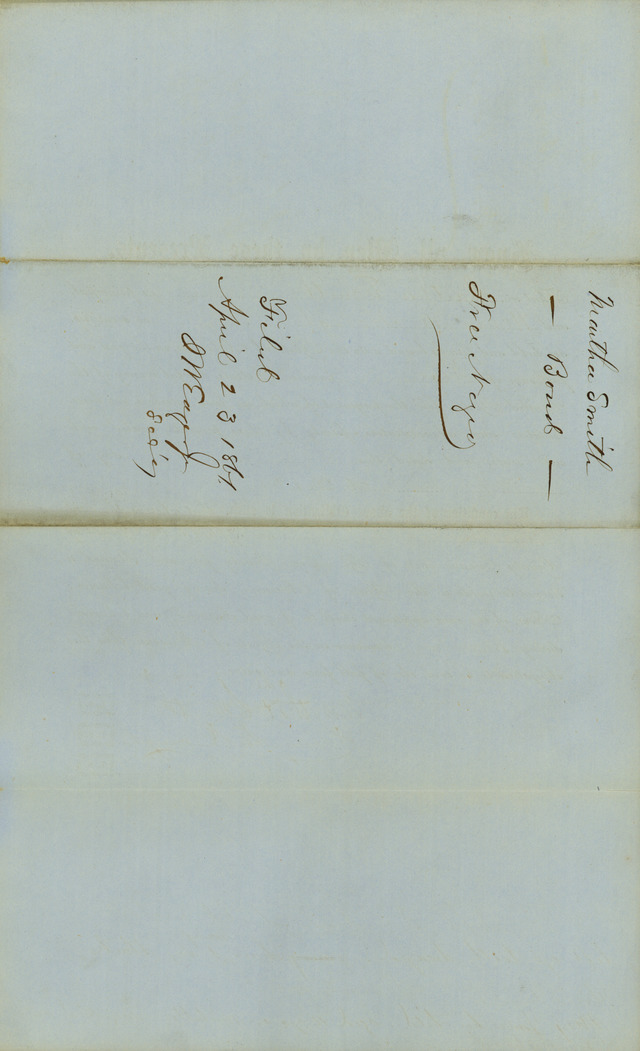 Martha Smith
— Bond —
Free Negro
Filed
April 23 1861